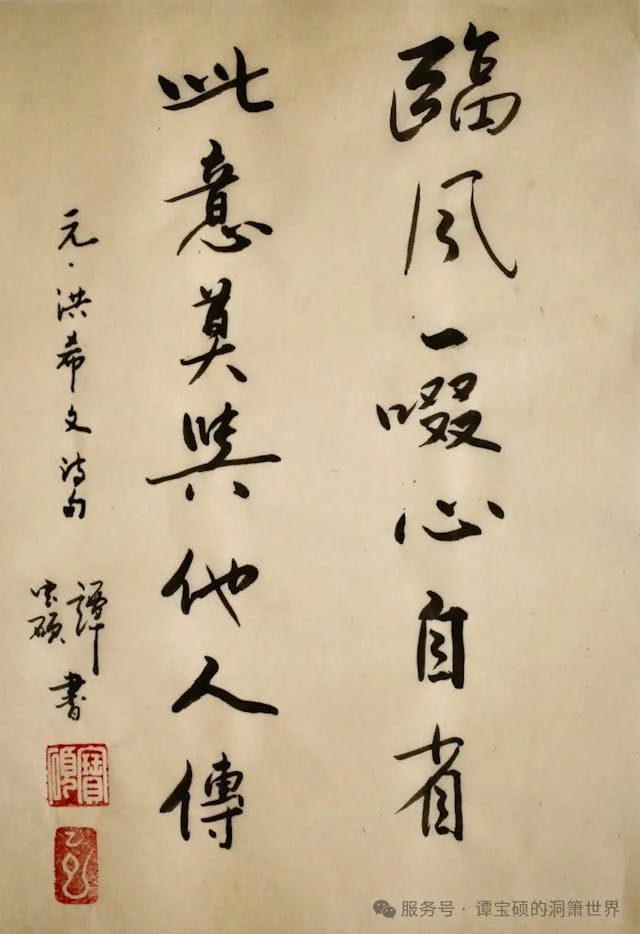 臨風一啜心自省
此意莫與他人傳
元·洪希文詩句
譚寶碩書
寶碩
服务号·谭宝硕的洞箫世界